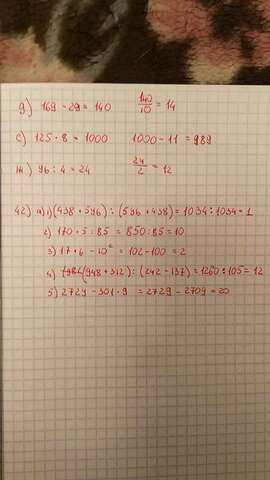 g) 169 - 29 = 140 140/10 = 14
c) 125 · 8 = 1000 1000 - 11 = 989
m) 96 : 4 = 24 24/2 = 12
42) a) 1) (438 + 596) : (596 + 438) = 1034 : 1034 = 1
2) 170 · 5 : 85 = 850 : 85 = 10
3) 17 · 6 - 10² = 102 - 100 = 2
4) (948 + 312) : (242 - 137) = 1260 : 105 = 12
5) 2729 - 301 · 9 = 2729 - 2709 = 20